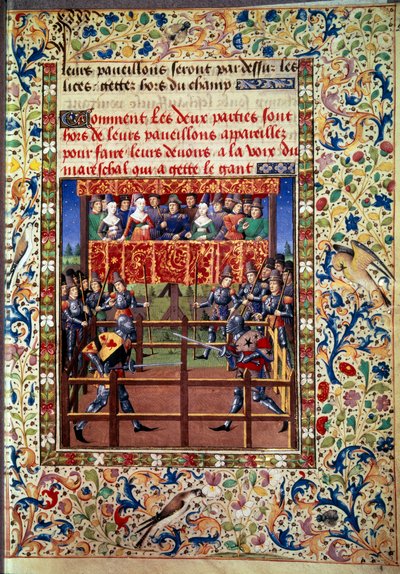 leurs paveillons seront par dessur les
lices getter hors du champ
Comment Les deux parties sont
hors de leurs paveillons appareillez
pour faire leurs devoirs a la voix du
mareschal qui a gette le gant